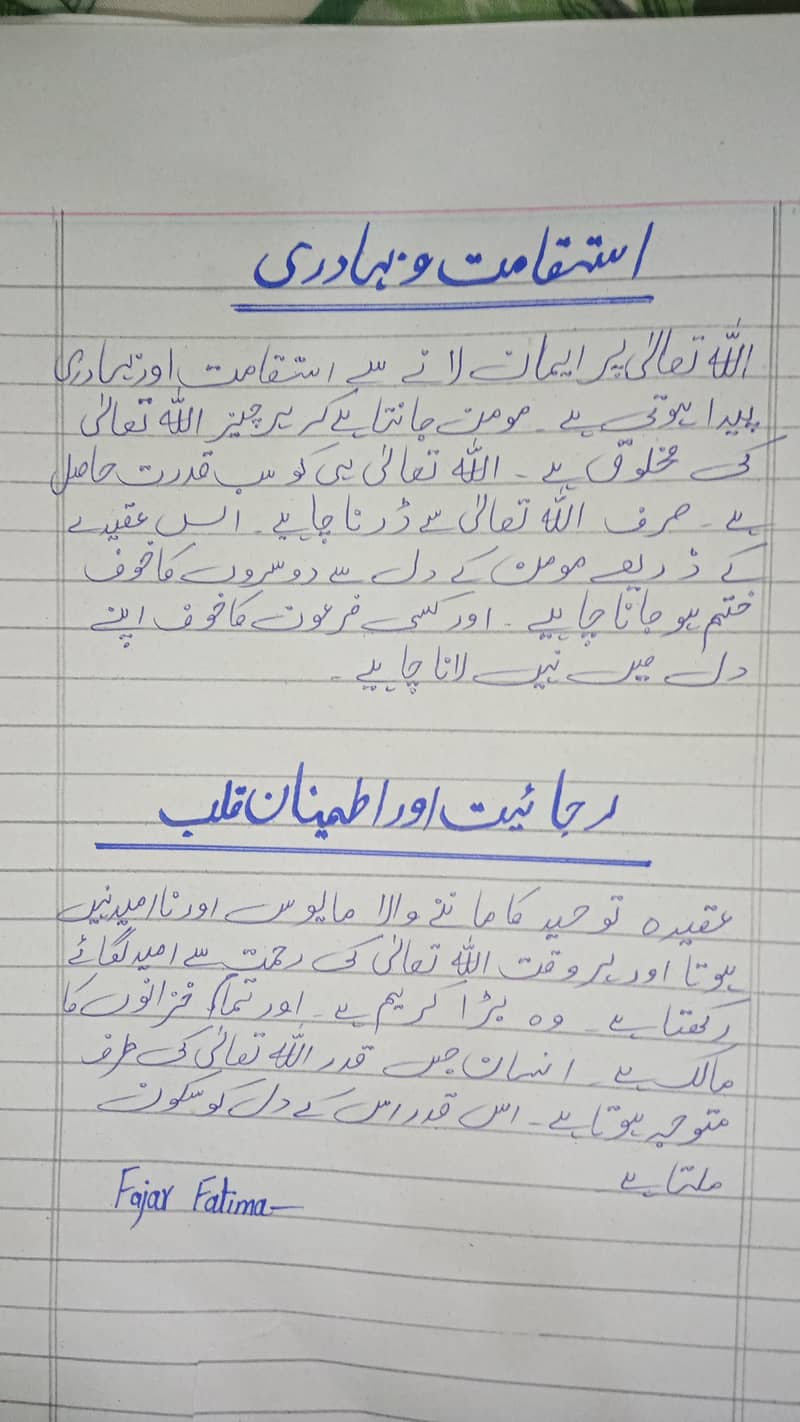 استقامت و بہادری
اللہ تعالیٰ پر ایمان لانے سے استقامت اور بہادری
پیدا ہوتی ہے ۔ مومن جانتا ہے کہ ہر چیز اللہ تعالیٰ
کی مخلوق ہے ۔ اللہ تعالیٰ ہی کو سب قدرت حاصل
ہے ۔ صرف اللہ تعالیٰ سے ڈرنا چاہیے ۔ اس عقیدے
کے ذریعے مومن کے دل سے دوسروں کا خوف
ختم ہو جانا چاہیے ۔ اور کسی فرعون کا خوف اپنے
دل میں نہیں لانا چاہیے ۔
رجائیت اور اطمینان قلب
عقیدہ توحید کا ماننے والا مایوس اور نا امید نہیں
ہوتا اور ہر وقت اللہ تعالیٰ کی رحمت سے امید لگائے
رکھتا ہے ۔ وہ بڑا کریم ہے ۔ اور تمام خزانوں کا
مالک ہے ۔ انسان جس قدر اللہ تعالیٰ کی طرف
متوجہ ہوتا ہے ۔ اس قدر اس کے دل کو سکون
ملتا ہے
Fajar Fatima